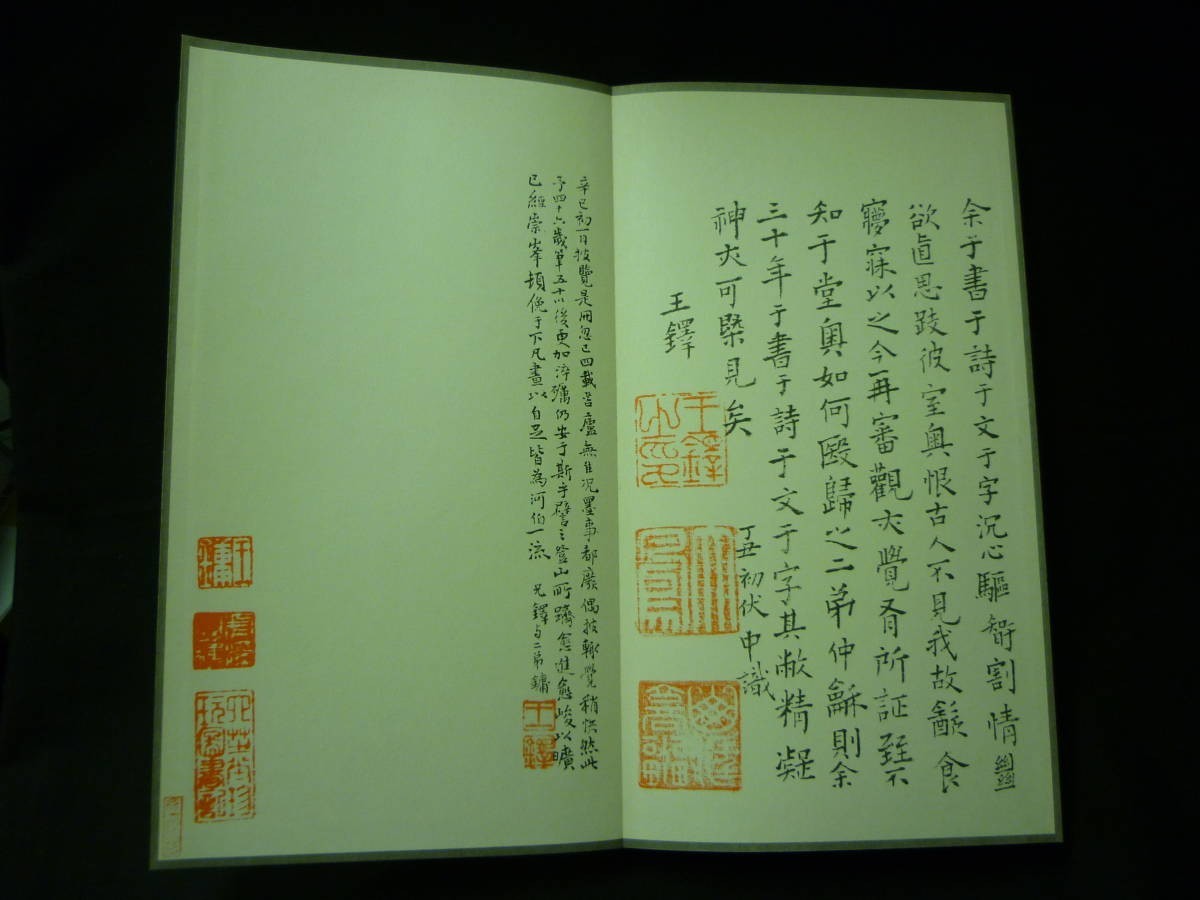 余于書于詩于文于字沉心驅智割情㡭
欲直思跂彼室奧恨古人不見我故飲食
寢寐以之今再審觀大覺有所証雖不
知于堂奧如何殹歸之二弟仲龢則余
三十年于書于詩于文于字其敝精凝
神大可槩見矣
丁丑初伏中識
王鐸
王鐸
辛巳初一日披覽是冊忽已四載 廬無 況墨事都廢偶披 覺稍 然此
予四十六歲筆五十以後更加淬礪仍安于斯乎譬之登山所躋愈進愈峻以曠
已經崇峯頓俛于下凡畫以自足皆為河伯一流
兄鐸与二弟鏞
王鐸